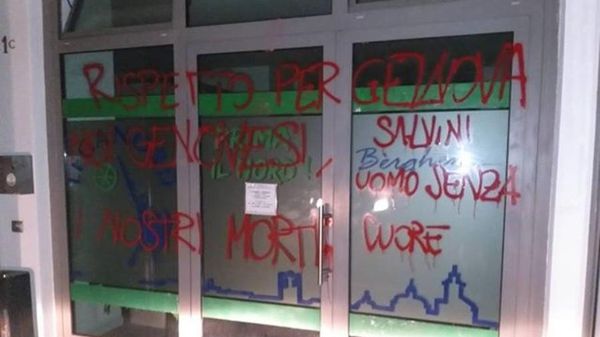 1c
RISPETTO PER GENOVA
GENOVESI,
I NOSTRI MORTI.
SALVINI
UOMO SENZA
CUORE
PRIMA
IL NORD!
Bèrghem